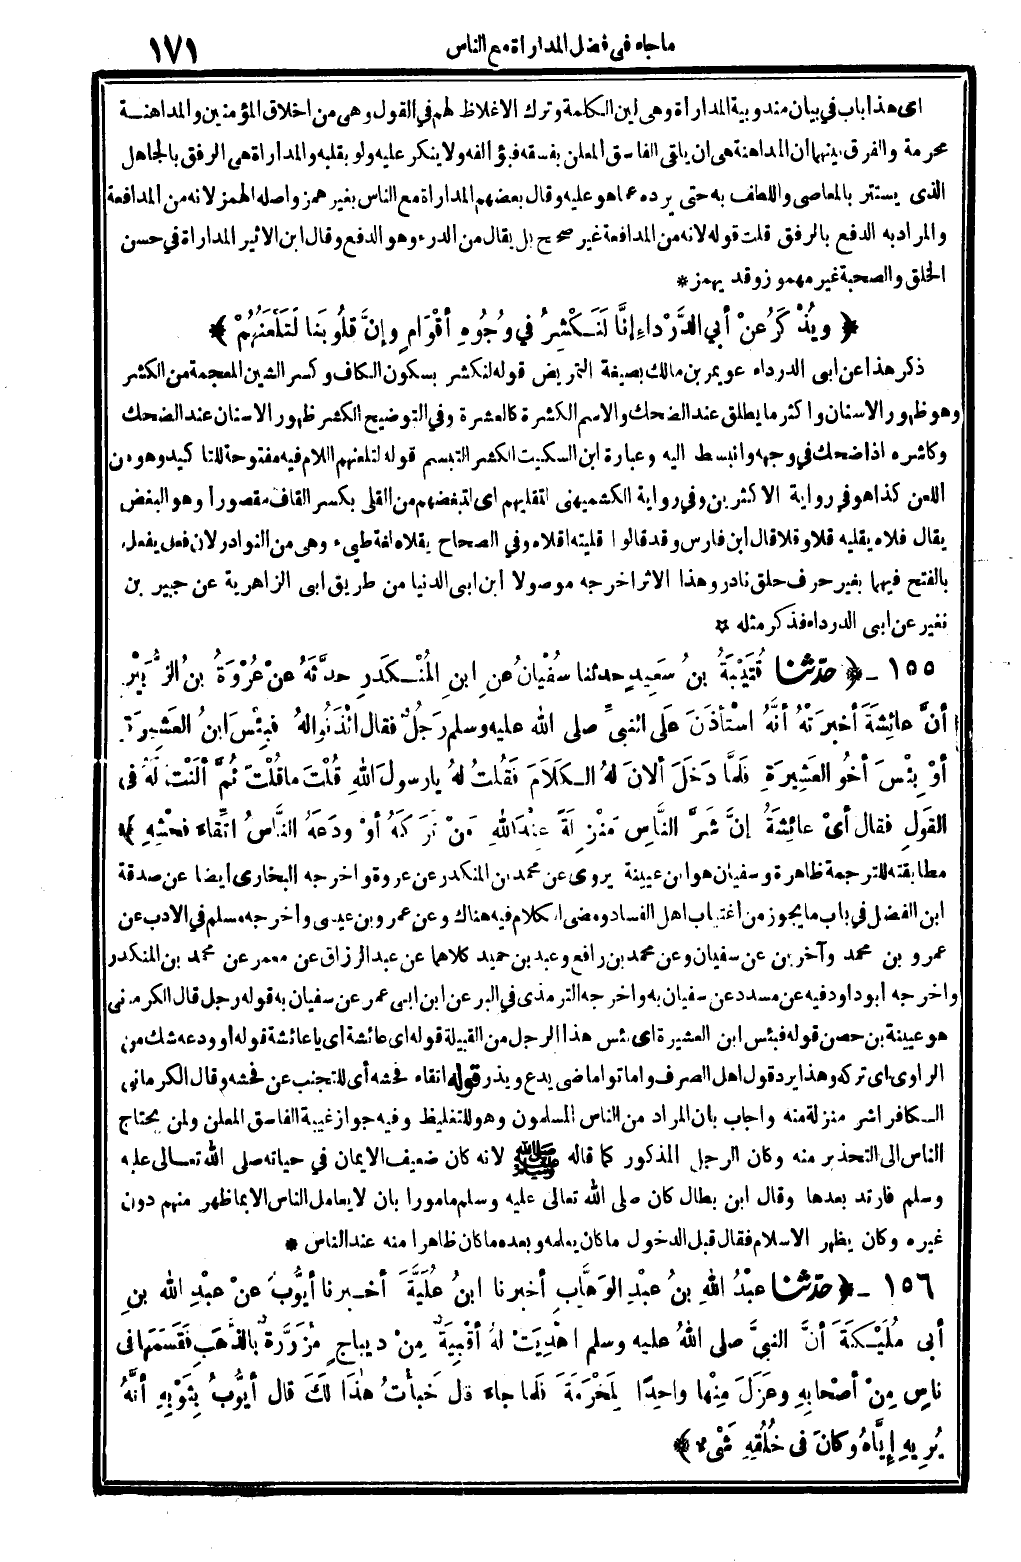 ما جاء في فضل المداراة مع الناس ١٧١
اى هذا باب في بيان مندوبية المداراة وهى لين الكلمة وترك الاغلاظ لهم في القول وهى من اخلاق المؤمنين والمداهنـــة
محرمة والفرق بينهما ان المداهنة هى ان يلقى الفاسق المعلن بفسقه فيؤالفه ولا ينكر عليه ولو بقلبه والمداراة هى الرفق بالجاهل
الذى يستتر بالمعاصى واللطف به حتى يرده عما هو عليه وقال بعضهم المداراة مع الناس بغير همز واصله الهمز لانه من المدافعة
والمراد به الدفع بالرفق قلت قوله لانه من المدافعة غير صحيح بل يقال من الدرء وهو الدفع وقال ابن الاثير المداراة في حسن
الخلق والصحبة غير مهموز وقد يهمز *
﴿ ويُذْكَرُ عنْ أبي الدَّرْداءِ إنَّا لَنَـكْشِرُ في وُجُوهِ أقْوامٍ وإنَّ قلُوبَنا لَتَلْعَنُهُمْ ﴾
ذكر هذا عن ابى الدرداء عويمر بن مالك بصيغة التمريض قوله لنكشر بسكون الكاف وكسر الشين المعجمة من الكشر
وهو ظهور الاسنان واكثر ما يطلق عند الضحك والاسم الكشرة كالعشرة وفي التوضيح الكشر ظهور الاسنان عند الضحك
وكاشره اذا ضحك في وجهه وانبسط اليه وعبارة ابن السكيت الكشر التبسم قوله لتلعنهم اللام فيه مفتوحة للتاكيد وهو من
اللعن كذا هو في رواية الاكثرين وفي رواية الكشميهنى لتقليهم اى لتبغضهم من القلى بكسر القاف مقصورا وهو البغض
يقال قلاه يقليه قلا وقلا قال ابن فارس وقد قالوا قليته اقلاه وفي الصحاح يقلاه لغة طيىء وهى من النوادر لان فعل يفعل
بالفتح فيهما بغير حرف حلق نادر وهذا الاثر اخرجه موصولا ابن ابى الدنيا من طريق ابى الزاهرية عن جبير بن
نفير عن ابى الدرداء فذكر مثله *
١٥٥ ـ ﴿ حدّثنا قُتَيْبَةُ بنُ سَعِيدٍ حدثنا سفْيانُ عنِ ابنِ المُنْـكَدرِ حدثَهُ عنْ عُرْوَةُ بنُ الزُّبَيْرِ
أنَّ عائِشَةَ أخبرَتْهُ أنَّهُ اسْتأذَنَ عَلَى النبيِّ صلى الله عليه وسلم رَجُلٌ فقال ائْذَنُوا لهُ فبِئْسَ ابنُ العَشِيرَةِ
أوْ بِئْسَ أخُو العَشِيرَةِ فلَمَّا دَخَلَ ألانَ لهُ الـكَلاَمَ فَقُلْتُ لهُ يارسولَ اللهِ قُلْتَ ماقُلْتَ ثُمَّ ألَنْتَ لَهُ فى
القَوْلِ فقال أىْ عائِشَةُ إنَّ شَرَّ النَّاسِ مَنْزِلَةً عِنْدَ اللهِ مَنْ تَرَكَهُ أوْ ودَعَهُ النَّاسُ اتِّقاءَ فُحْشِهِ ﴾
مطابقته للترجمة ظاهرة وسفيان هو ابن عيينة يروى عن محمد بن المنكدر عن عروة واخرجه البخارى ايضا عن صدقة
ابن الفضل في باب ما يجوز من اغتياب اهل الفساد ومضى الكلام فيه هناك وعن عمرو بن عيسى واخرجه مسلم في الادب عن
عمرو بن محمد وآخرين عن سفيان وعن محمد بن رافع وعبد بن حميد كلاهما عن عبد الرزاق عن معمر عن محمد بن المنكدر
واخرجه ابو داود فيه عن مسدد عن سفيان به واخرجه الترمذى في البر عن ابن ابى عمر عن سفيان به قوله رجل قال الكرمانى
هو عيينة بن حصن قوله فبئس ابن العشيرة اى بئس هذا الرجل من القبيلة قوله اى عائشة اى ياعائشة قوله او ودعه شك من
الراوى اى تركه وهذا يرد قول اهل الصرف واماتوا ماضى يدع ويذر قوله اتقاء فحشه أى للتجنب عن فحشه وقال الكرمانى
الـكافر اشر منزلة منه واجاب بان المراد من الناس المسلمون وهو للتغليظ وفيه جواز غيبة الفاسق المعلن ولمن يحتاج
الناس الى التحذير منه وكان الرجل المذكور كما قاله ﷺ لانه كان ضعيف الايمان في حياته صلى الله تعـالى عليه
وسلم فارتد بعدها وقال ابن بطال كان صلى الله تعالى عليه وسلم مامورا بان لا يعامل الناس الا بما ظهر منهم دون
غيره وكان يظهر الاسلام فقال قبل الدخول ما كان يعلمه وبعده ما كان ظاهرا منه عند الناس *
١٥٦ ـ ﴿ حدّثنا عبْدُ اللهِ بنُ عبْدِ الوَهَّابِ أخبرنا ابنُ عُلَيَّةَ أخـبرنا أيُّوبُ عنْ عبْدِ الله بنِ
أبى مُلَيْـكَةَ أنَّ النبيَّ صلى اللهُ عليه وسلم اهْدِيَتْ لهُ أقْبِيَةٌ مِنْ ديباجٍ مُزَرَّرَةٌ بالذَّهَبِ فَقَسَمَها فى
ناسٍ مِنْ أصْحابِهِ وعَزَلَ مِنْها واحِدًا لِمَخْرَمَةَ فلما جاءَ قال خَبأتُ هٰذَا لَكَ قال أيُّوبُ بِثَوْبِهِ أنَّهُ
يُرِيهِ إيَّاهُ وكانَ فى خُلُقِهِ شَىْءٌ ﴾